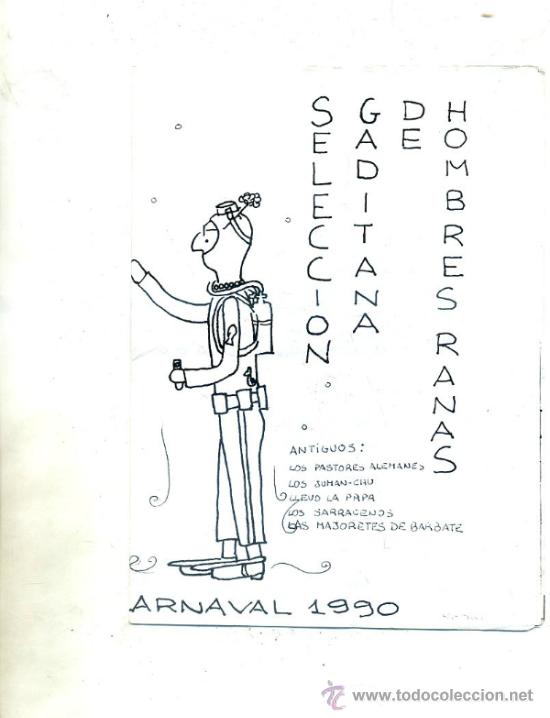 SELECCION
GADITANA
DE
HOMBRES RANAS
ANTIGUOS:
LOS PASTORES ALEMANES
LOS JUMAN-CHU
LLEVO LA PAPA
LOS SARRACENOS
LAS MAJORETES DE BARBATE
ARNAVAL 1990
www.todocoleccion.net